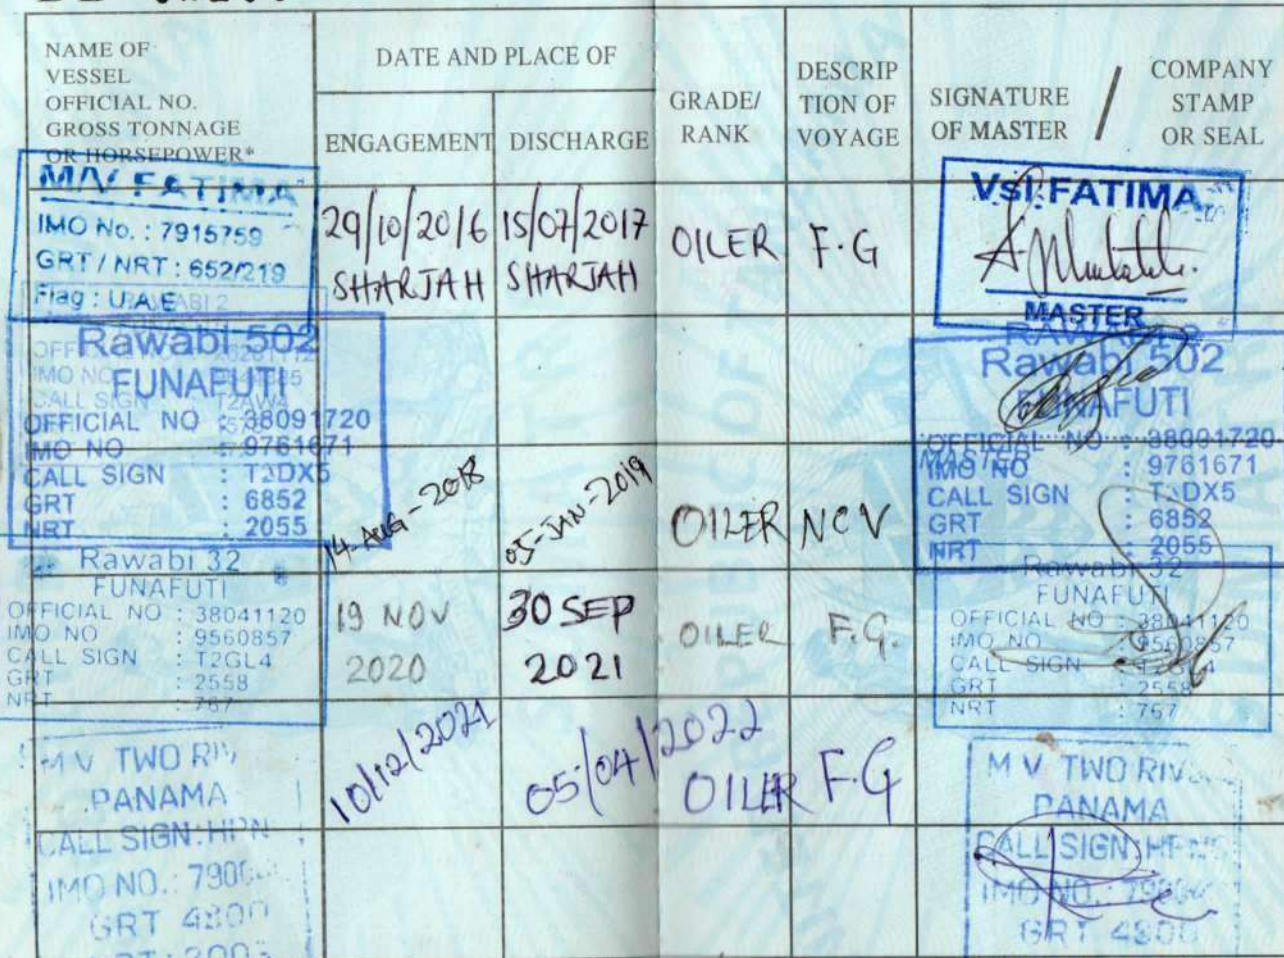 NAME OF
VESSEL
OFFICIAL NO.
GROSS TONNAGE
OR HORSEPOWER*
DATE AND PLACE OF
ENGAGEMENT
DISCHARGE
GRADE/
RANK
DESCRIP
TION OF
VOYAGE
SIGNATURE
OF MASTER
/
COMPANY
STAMP
OR SEAL
M/V FATIMA
IMO No. : 7915759
GRT / NRT : 652/219
Flag : U.A.E
29/10/2016
SHARJAH
15/07/2017
SHARJAH
OILER
F.G
Vsl. FATIMA
MASTER
Rawabi 502
FUNAFUTI
OFFICIAL NO : 38091720
IMO NO : 9761671
CALL SIGN : T2DX5
GRT : 6852
NRT : 2055
14-AUG-2018
05-JAN-2019
OILER
NCV
Rawabi 502
FUNAFUTI
OFFICIAL NO : 38091720
IMO NO : 9761671
CALL SIGN : T2DX5
GRT : 6852
NRT : 2055
Rawabi 32
FUNAFUTI
OFFICIAL NO : 38041120
IMO NO : 9560857
CALL SIGN : T2GL4
GRT : 2558
NRT : 767
19 NOV
2020
30 SEP
2021
OILER
F.G.
Rawabi 32
FUNAFUTI
OFFICIAL NO : 38041120
IMO NO : 9560857
CALL SIGN
GRT : 2558
NRT : 767
M V TWO
PANAMA
CALL SIGN:
IMO NO. :
GRT 4800
10/12/2021
05/04/2022
OILER
F.G
M V TWO
PANAMA
CALL SIGN:
IMO NO. :
GRT 4800